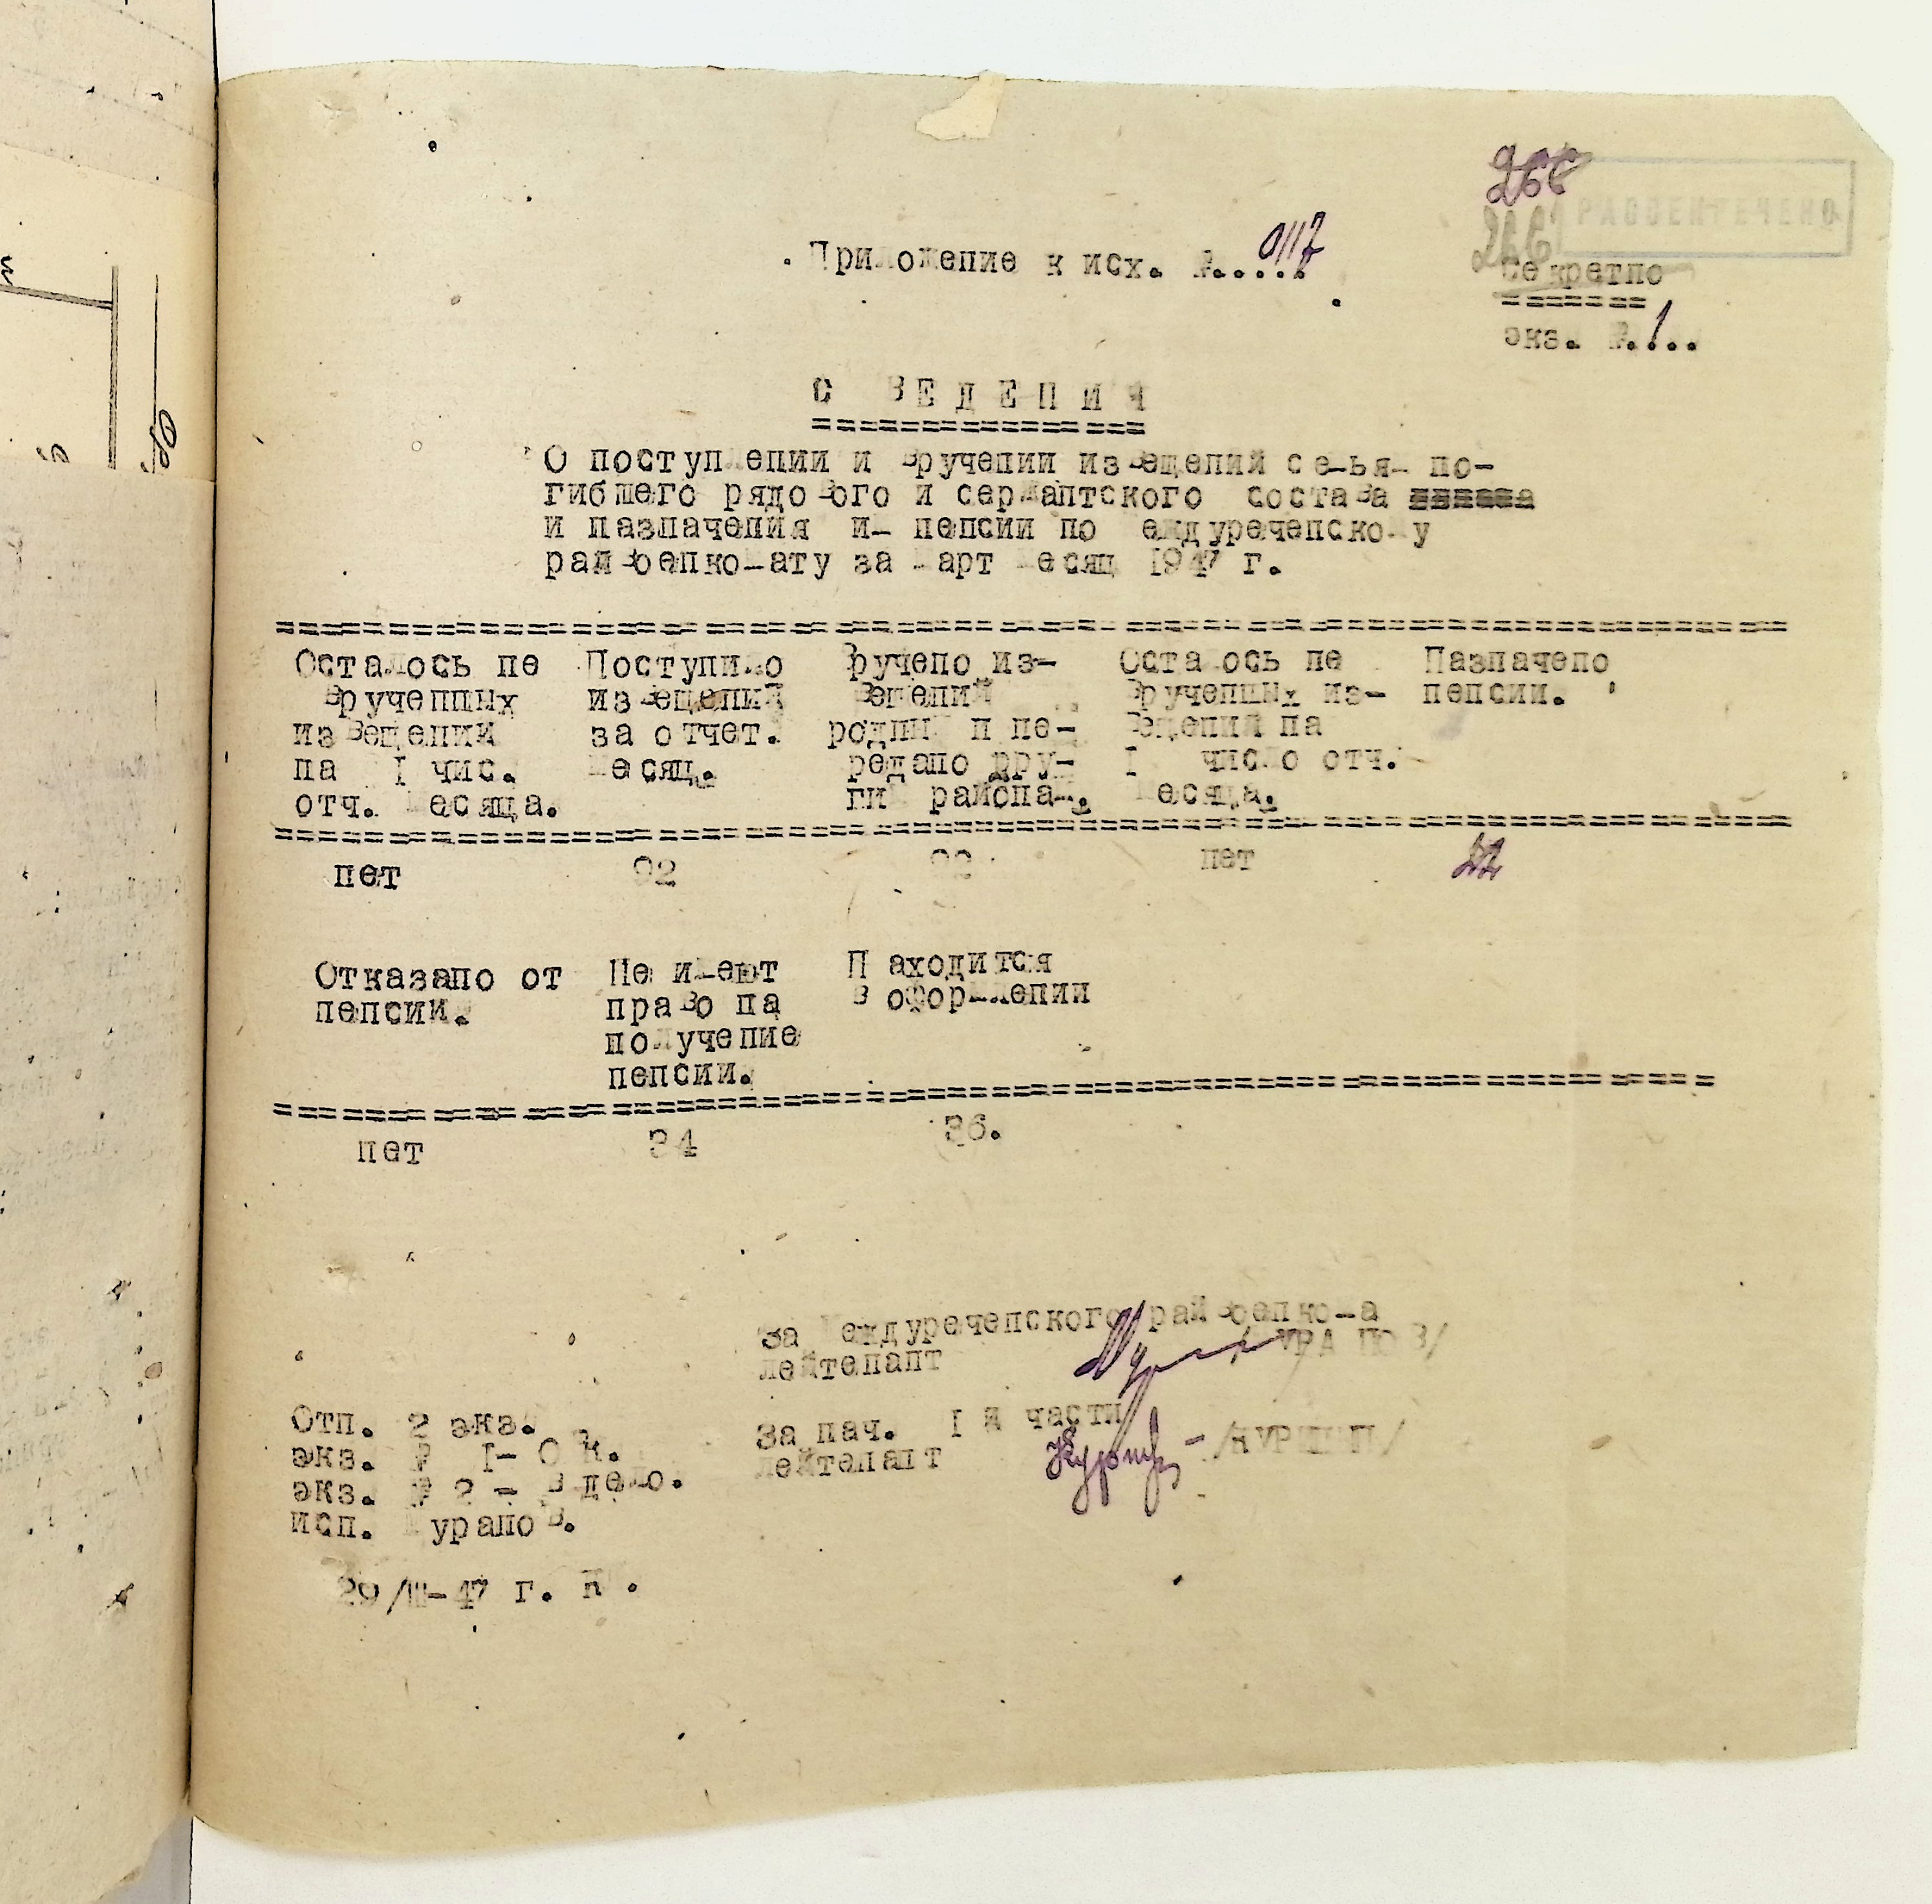 266
266
РАССЕКРЕЧЕНО
Приложение к исх. №....0117
Секретно
=======
экз. №.1..
С ВЕДЕНИЯ
===============
О поступлении и вручении извещений семьям по-
гибшего рядового и сержантского состава
и назначения им пенсии по Междуреченскому
райвоенкомату за март месяц 1947 г.
Осталось не Поступило Вручено из- Осталось не Назначено
врученных извещений вещений врученных из- пенсии.
извещений за отчет. родным и пе- вещений на
на I чис. месяц. редано дру- I число отч.
отч. месяца. гим районам. месяца.
нет 92 92 нет 22
Отказано от Не имеют Находится
пенсии. право на в оформлении
получение
пенсии.
нет 34 36.
За Междуреченского райвоенкома
лейтенант /МУРАНОВ/
Отп. 2 экз. За нач. I й части
экз. № I- ОВК. лейтенант /КУРШИН/
экз. № 2 - в дело.
исп. Муранов.
29/III-47 г. К .